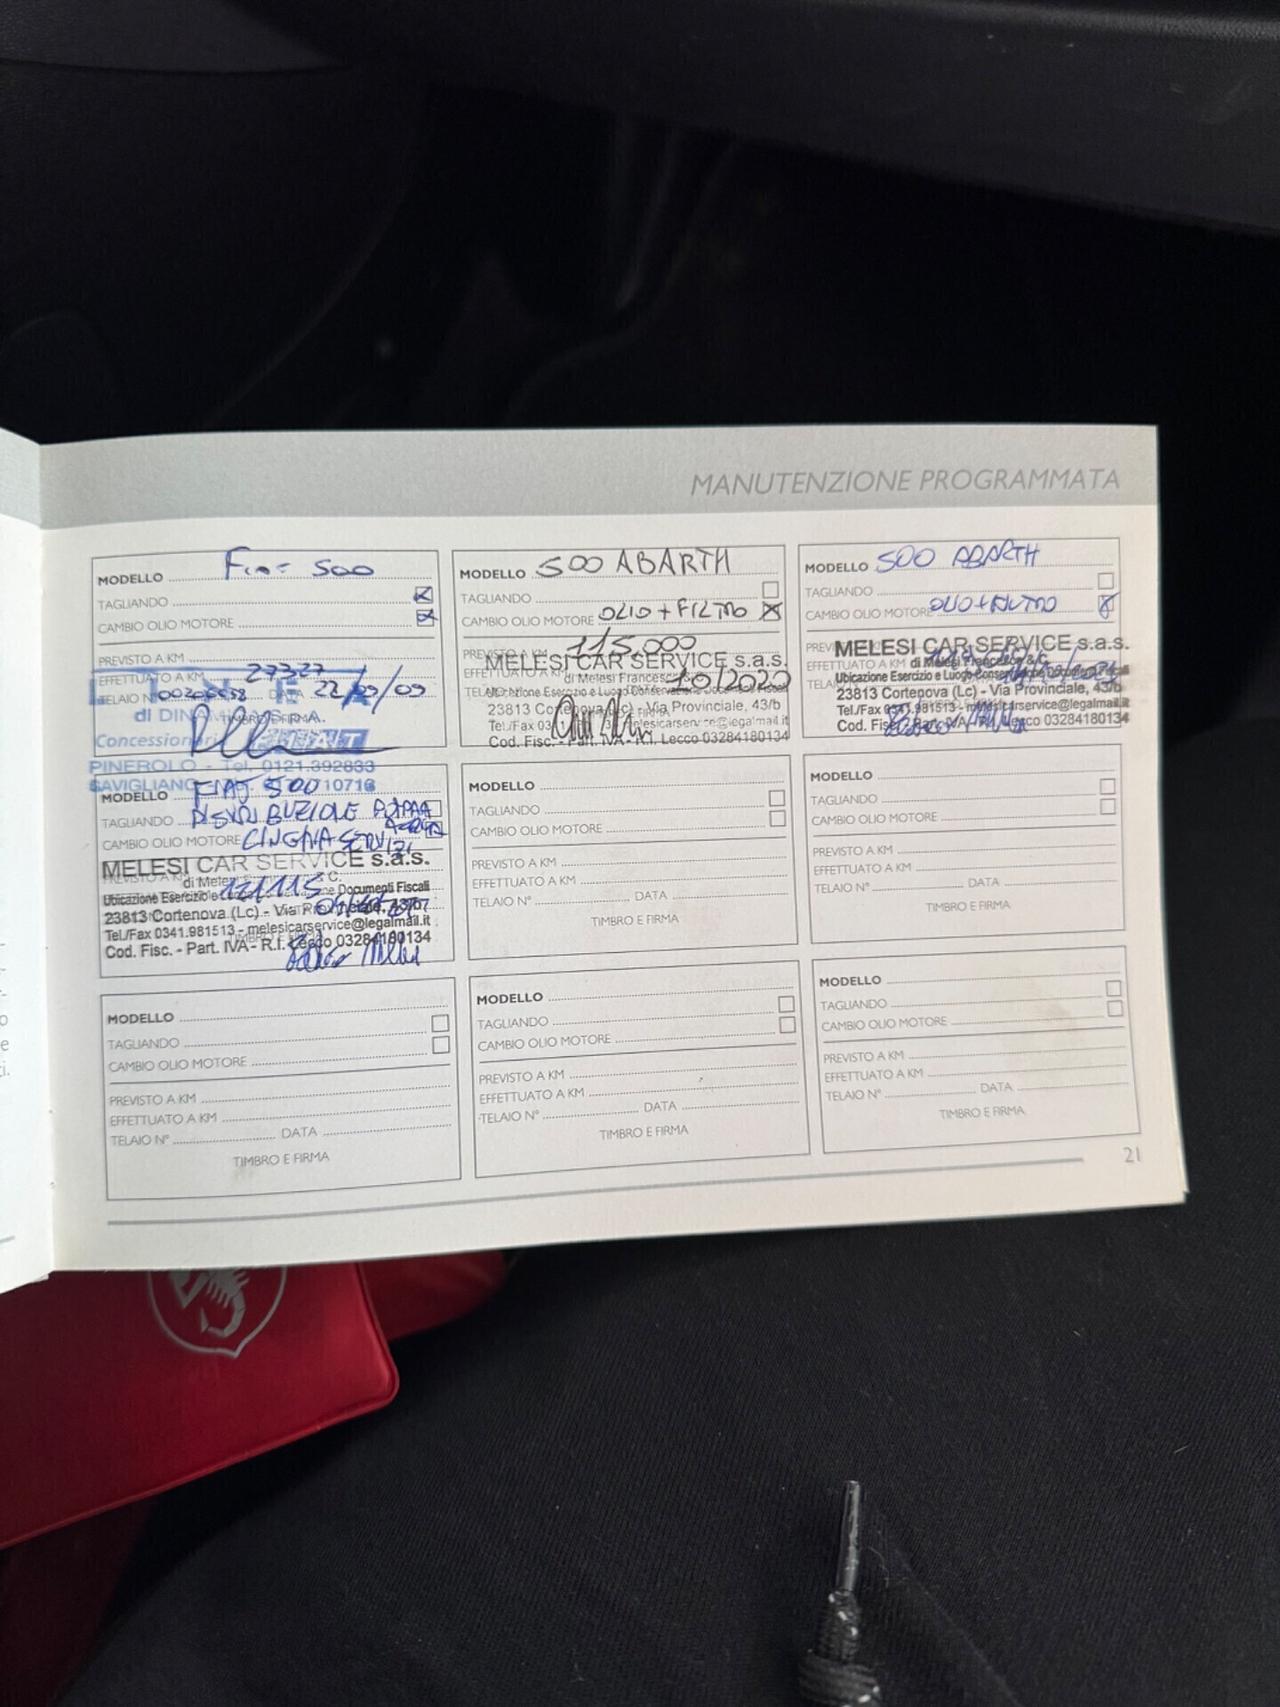 MANUTENZIONE PROGRAMMATA
MODELLO Fiat 500
TAGLIANDO
CAMBIO OLIO MOTORE
PREVISTO A KM
EFFETTUATO A KM 27327
TELAIO N° DATA 22/09/09
TIMBRO E FIRMA
di DINA
Concessionari SEAT
PINEROLO - Tel. 0121.392833
SAVIGLIANO 10716
MODELLO 500 ABARTH
TAGLIANDO
CAMBIO OLIO MOTORE OLIO + FILTRO
PREVISTO A KM 115.000
MELESI CAR SERVICE s.a.s.
EFFETTUATO A KM
di Melesi Francesco
10/2020
Ubicazione Esercizio e Luogo Conservazione Documenti Fiscali
23813 Cortenova (Lc) - Via Provinciale, 43/b
Tel./Fax melesicarservice@legalmail.it
Cod. Fisc. - Part. IVA - R.I. Lecco 03284180134
MODELLO 500 ABARTH
TAGLIANDO
CAMBIO OLIO MOTORE OLIO + FILTRO
MELESI CAR SERVICE s.a.s.
EFFETTUATO A KM di Melesi Francesco & C.
Ubicazione Esercizio e Luogo Conservazione Documenti Fiscali
23813 Cortenova (Lc) - Via Provinciale, 43/b
Tel./Fax 0341.981513 - melesicarservice@legalmail.it
Cod. Fisc. - Part. IVA - R.I. Lecco 03284180134
MODELLO FIAT 500
TAGLIANDO DISTRIBUZIONE POMPA
ACQUA
CAMBIO OLIO MOTORE CINGHIA SERVIZI
MELESI CAR SERVICE s.a.s.
di Melesi & C.
121115
Ubicazione Esercizio e Documenti Fiscali
23813 Cortenova (Lc) - Via Provinciale, 43/b
Tel./Fax 0341.981513 - melesicarservice@legalmail.it
Cod. Fisc. - Part. IVA - R.I. Lecco 03284180134
MODELLO
TAGLIANDO
CAMBIO OLIO MOTORE
PREVISTO A KM
EFFETTUATO A KM
TELAIO N° DATA
TIMBRO E FIRMA
MODELLO
TAGLIANDO
CAMBIO OLIO MOTORE
PREVISTO A KM
EFFETTUATO A KM
TELAIO N° DATA
TIMBRO E FIRMA
MODELLO
TAGLIANDO
CAMBIO OLIO MOTORE
PREVISTO A KM
EFFETTUATO A KM
TELAIO N° DATA
TIMBRO E FIRMA
MODELLO
TAGLIANDO
CAMBIO OLIO MOTORE
PREVISTO A KM
EFFETTUATO A KM
TELAIO N° DATA
TIMBRO E FIRMA
MODELLO
TAGLIANDO
CAMBIO OLIO MOTORE
PREVISTO A KM
EFFETTUATO A KM
TELAIO N° DATA
TIMBRO E FIRMA
21